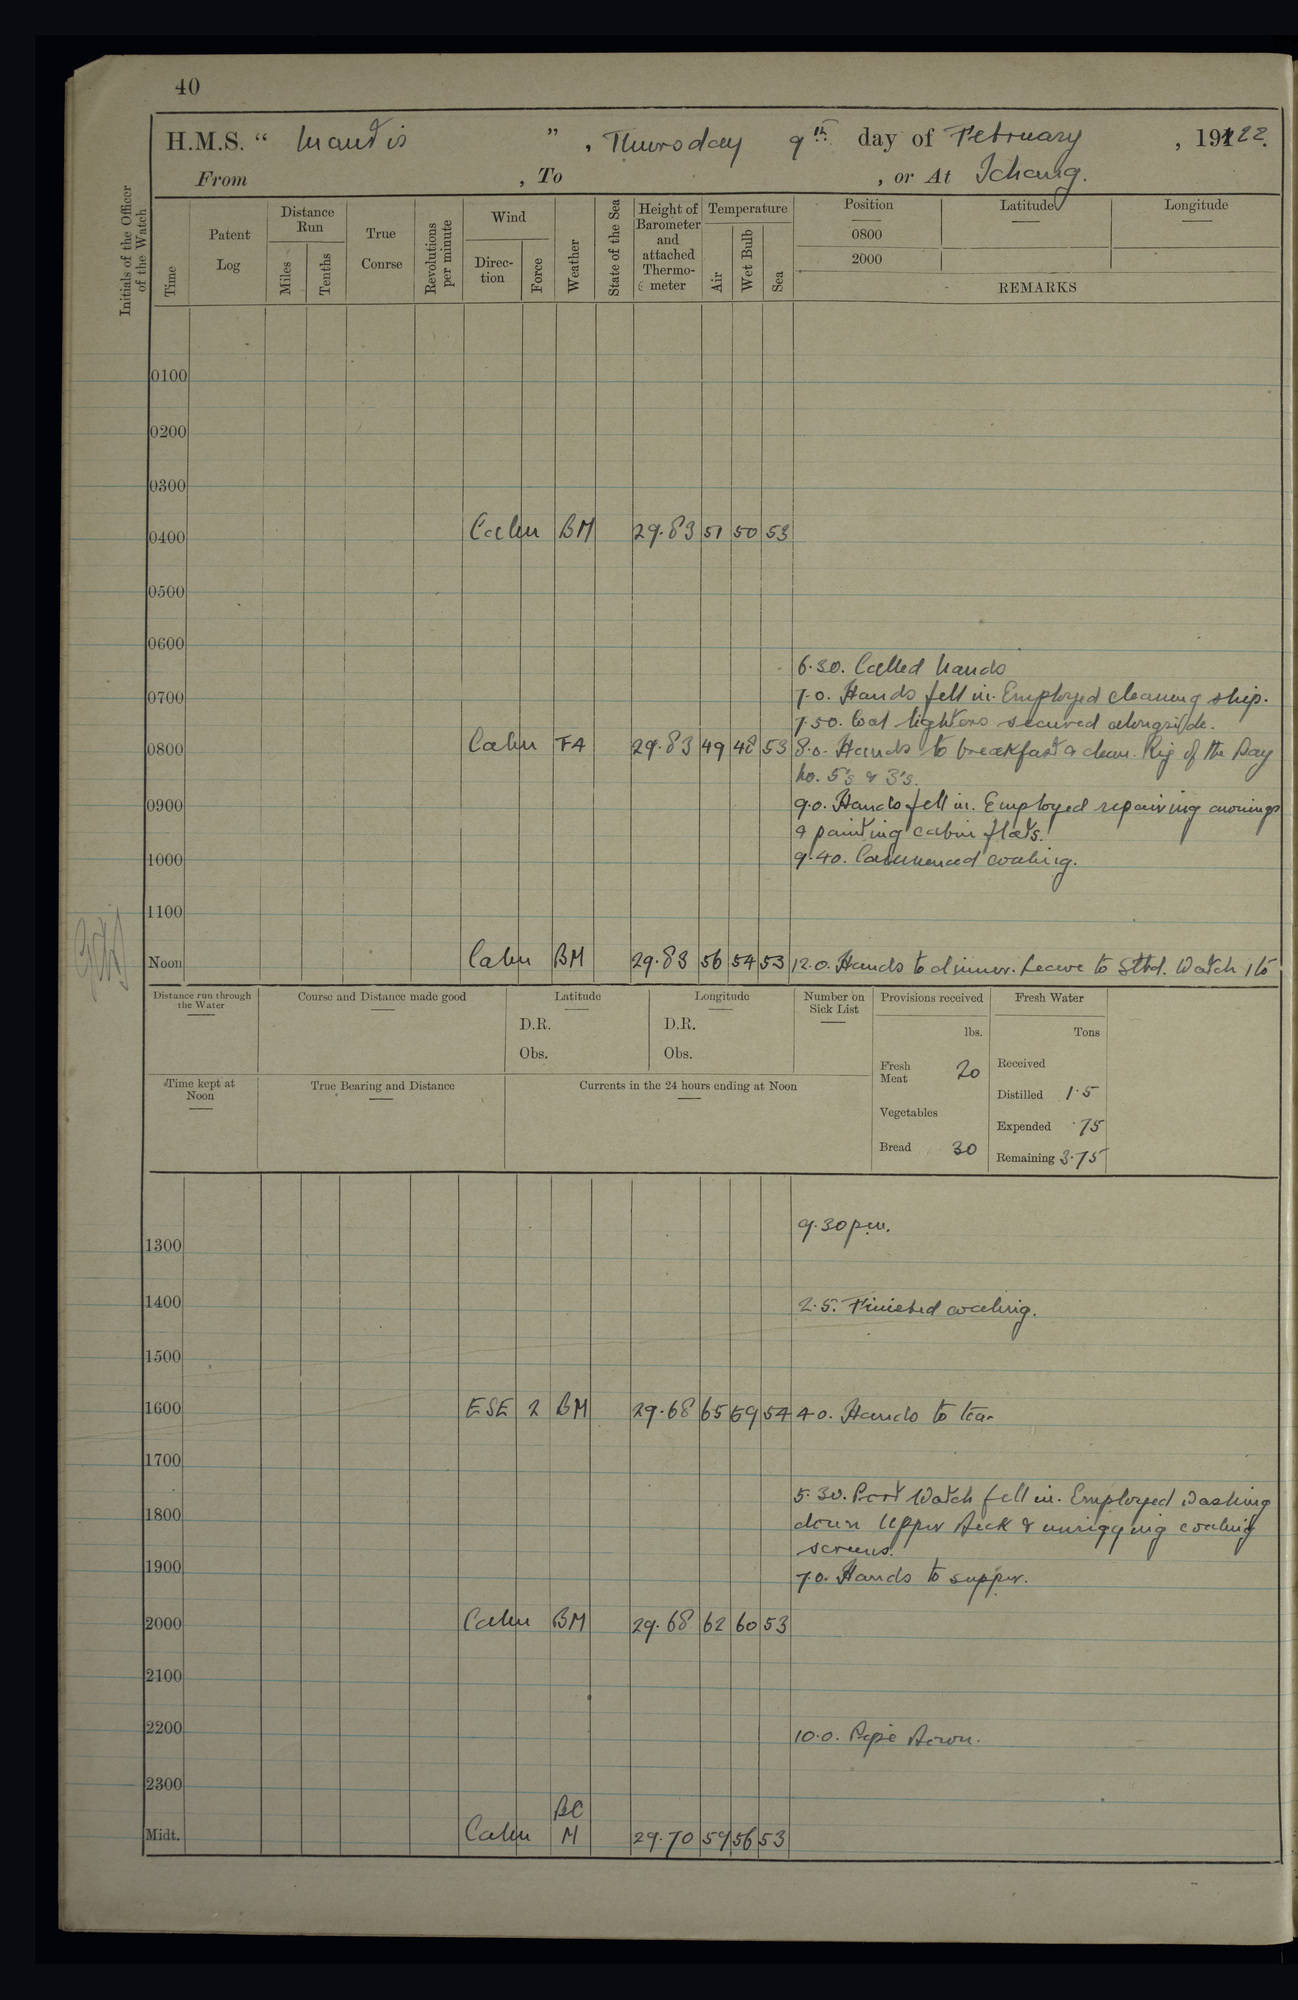 40
H.M.S. “ Mantis ” , Thursday 9th day of February , 19122.
From , To , or At Ichang.
Initials of the Officer of the Watch
Time
Patent Log
Distance Run
Miles
Tenths
True Course
Revolutions per minute
Wind
Direc-tion
Force
Weather
State of the Sea
Height of Barometer and attached Thermo-meter
Temperature
Air
Wet Bulb
Sea
Position Latitude Longitude
0800
2000
REMARKS
0100
0200
0300
0400 Calm BM 29.83 51 50 53
0500
0600
6.30. Called hands
0700 7.0. Hands fell in. Employed cleaning ship.
7.50. Coal lighters secured alongside.
0800 Calm FA 29.83 49 48 53 8.0. Hands to breakfast & clean. Rig of the Day
No. 5's & 3's.
0900 9.0. Hands fell in. Employed repairing awnings
& painting cabin flats.
1000 9.40. Commenced coaling.
1100
Noon Calm BM 29.83 56 54 53 12.0. Hands to dinner. Leave to Stbd. Watch 1 to
Distance run through the Water
Course and Distance made good
Latitude
D.R.
Obs.
Longitude
D.R.
Obs.
Number on Sick List
Provisions received
lbs.
Fresh Meat 20
Vegetables
Bread 30
Fresh Water
Tons
Received
Distilled 1.5
Expended .75
Remaining 3.75
Time kept at Noon
True Bearing and Distance
Currents in the 24 hours ending at Noon
9.30 pm.
1300
1400 2.5. Finished coaling.
1500
1600 ESE 2 BM 29.68 65 59 54 4.0. Hands to tea.
1700
5.30. Port Watch fell in. Employed washing
1800 down Upper Deck & unrigging coaling
screens.
1900 7.0. Hands to supper.
2000 Calm BM 29.68 62 60 53
2100
2200 10.0. Pipe Down.
2300
BC
Midt. Calm M 29.70 59 56 53